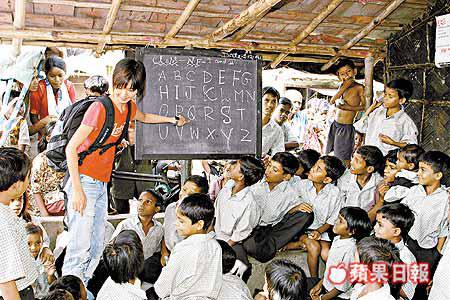 ABCDEFG
HIJKLMN
OPQRST
UVWXYZ
蘋果日報
蘋果日報